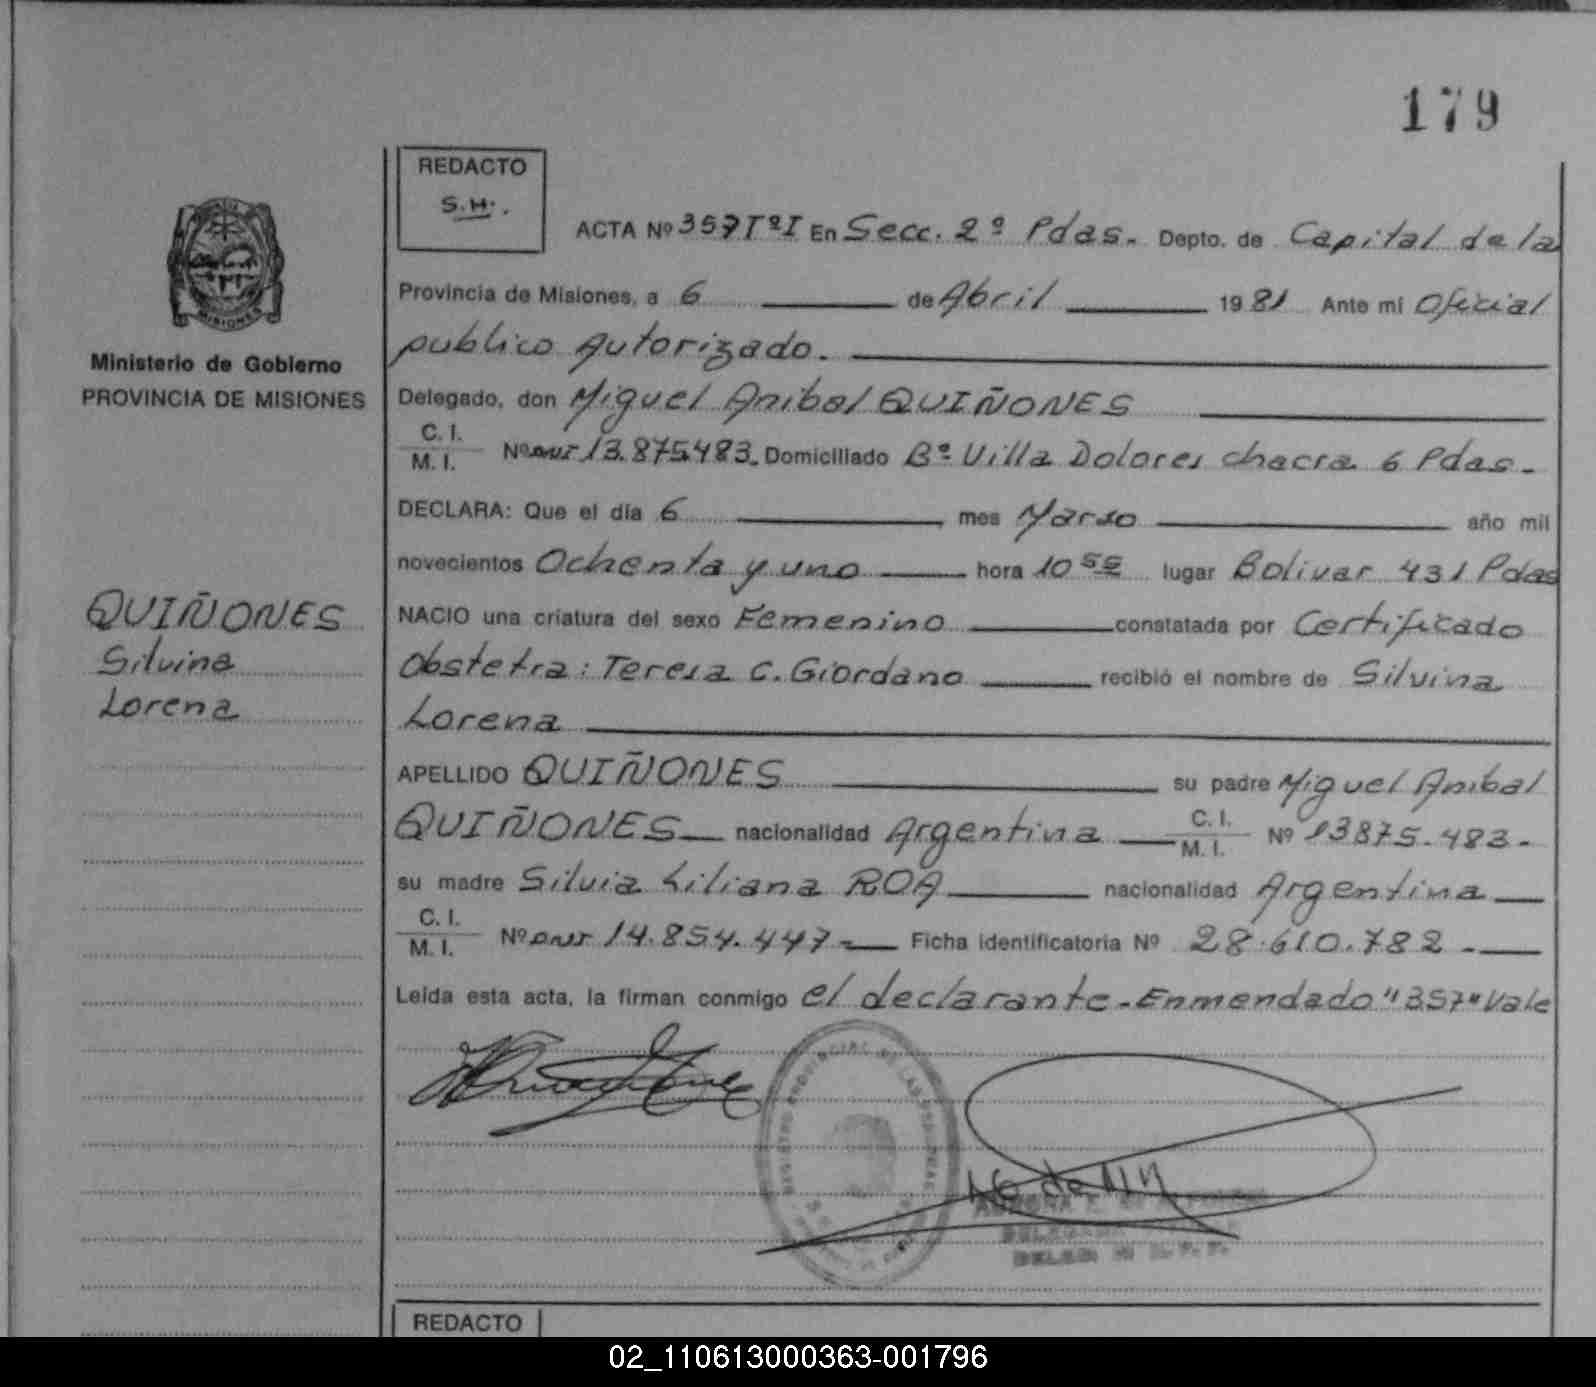 179
REDACTO
S.H.
ACTA Nº 357 TºI En Secc. 2º Pdas. Depto. de Capital de la
Provincia de Misiones, a 6 de Abril 1981 Ante mi Oficial
publico Autorizado.
MISIONES
Ministerio de Gobierno
PROVINCIA DE MISIONES
Delegado, don Miguel Anibal QUIÑONES
C. I.
M. I. Nº DNI 13.875.483. Domiciliado Bº Villa Dolores chacra 6 Pdas.
DECLARA: Que el día 6 mes Marso año mil
novecientos Ochenta y uno hora 10 55 lugar Bolivar 431 Pdas
QUIÑONES
Silvina
Lorena
NACIO una criatura del sexo Femenino constatada por Certificado
Obstetra: Teresa C. Giordano recibió el nombre de Silvina
Lorena
APELLIDO QUIÑONES su padre Miguel Anibal
QUIÑONES nacionalidad Argentina C. I. M. I. Nº 13875.483-
su madre Silvia Liliana ROA nacionalidad Argentina
C. I.
M. I. Nº DNI 14.854.447- Ficha identificatoria Nº 28.610.782-
Leida esta acta, la firman conmigo el declarante-Enmendado "357" Vale
REGISTRO PROVINCIAL DE LAS PERSONAS
REDACTO
02_110613000363-001796